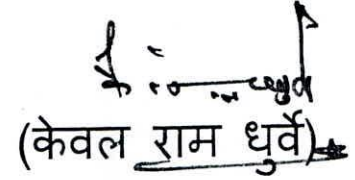 (केवल राम धुर्वे)